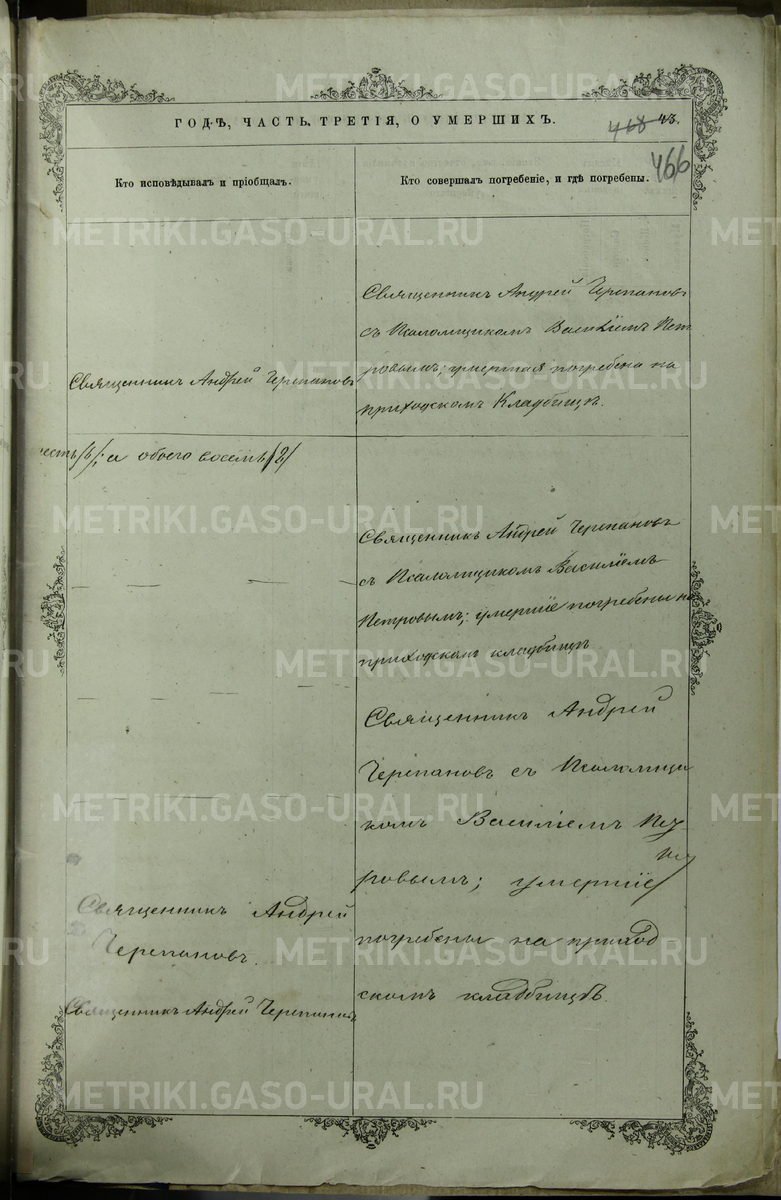 ГОДѢ, ЧАСТЬ ТРЕТІЯ, О УМЕРШИХЪ.
468 43.
466
Кто исповѣдывалъ и пріобщалъ.
Кто совершалъ погребеніе, и гдѣ погребены.
Священникъ Андрей Черепановъ
Священникъ Андрей Черепановъ
съ Псаломщикомъ Василіемъ Пет
ровымъ; умершая погребена на
приходскомъ Кладбищѣ.
есть /6/; а обоего восемь /8/
Священникъ Андрей Черепановъ
съ Псаломщикомъ Василіемъ
Петровымъ; умершіе погребены на
приходскомъ кладбищѣ
Священникъ Андрей
Черепановъ съ Псаломщи
комъ Василіемъ Пет
ровымъ; умершіе
погребены на приход
скомъ кладбищѣ.
Священникъ Андрей
Черепановъ.
Священникъ Андрей Черепановъ
METRIKI.GASO-URAL.RU